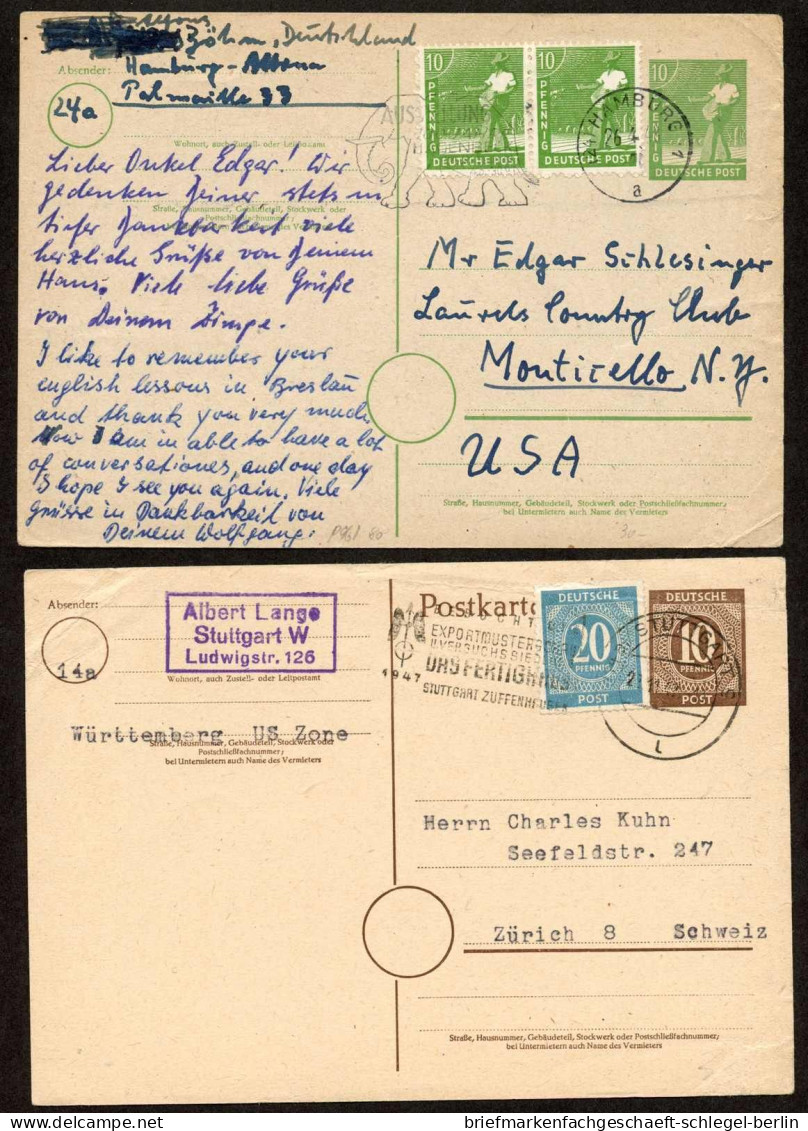 Böhm, Deutschland
Absender: Hamburg-Altona
Palmaille 33
24a
Wohnort, auch Zustell- oder Leitpostamt
Straße, Hausnummer, Gebäudeteil, Stockwerk oder
Postschließfachnummer;
Lieber Onkel Edgar! Wir
gedenken Deiner stets in
tiefer Dankbarkeit viele
herzliche Grüße von Deinem
Hans. Viele liebe Grüße
von Deinem
I like to remember your
english lessons in Breslau
and thank you very much
Now I am in able to have a lot
of conversationes, and one day
I hope I see you again. Viele
Grüsse in Dankbarkeit von
Deinem Wolfgang.
10 PFENNIG DEUTSCHE POST
10 PFENNIG DEUTSCHE POST
10 PFENNIG DEUTSCHE POST
HAMBURG 1
26.4
a
Mr Edgar Schlesinger
Laurels Country Club
Monticello N.Y.
USA
Straße, Hausnummer, Gebäudeteil, Stockwerk oder Postschließfachnummer;
bei Untermietern auch Name des Vermieters
30-
Absender:
Albert Lange
Stuttgart W
Ludwigstr. 126
14a
Wohnort, auch Zustell- oder Leitpostamt
Württemberg US Zone
Straße, Hausnummer, Gebäudeteil, Stockwerk oder
Postschließfachnummer;
bei Untermietern auch Name des Vermieters
Postkarte
1947
STUTTGART ZUFFENHAUSEN
DEUTSCHE
20
PFENNIG
POST
DEUTSCHE
10
PFENNIG
POST
STUTTGART
Herrn Charles Kuhn
Seefeldstr. 247
Zürich 8 Schweiz
Straße, Hausnummer, Gebäudeteil, Stockwerk oder Postschließfachnummer;
bei Untermietern auch Name des Vermieters
briefmarkenfachgeschaeft-schlegel-berlin